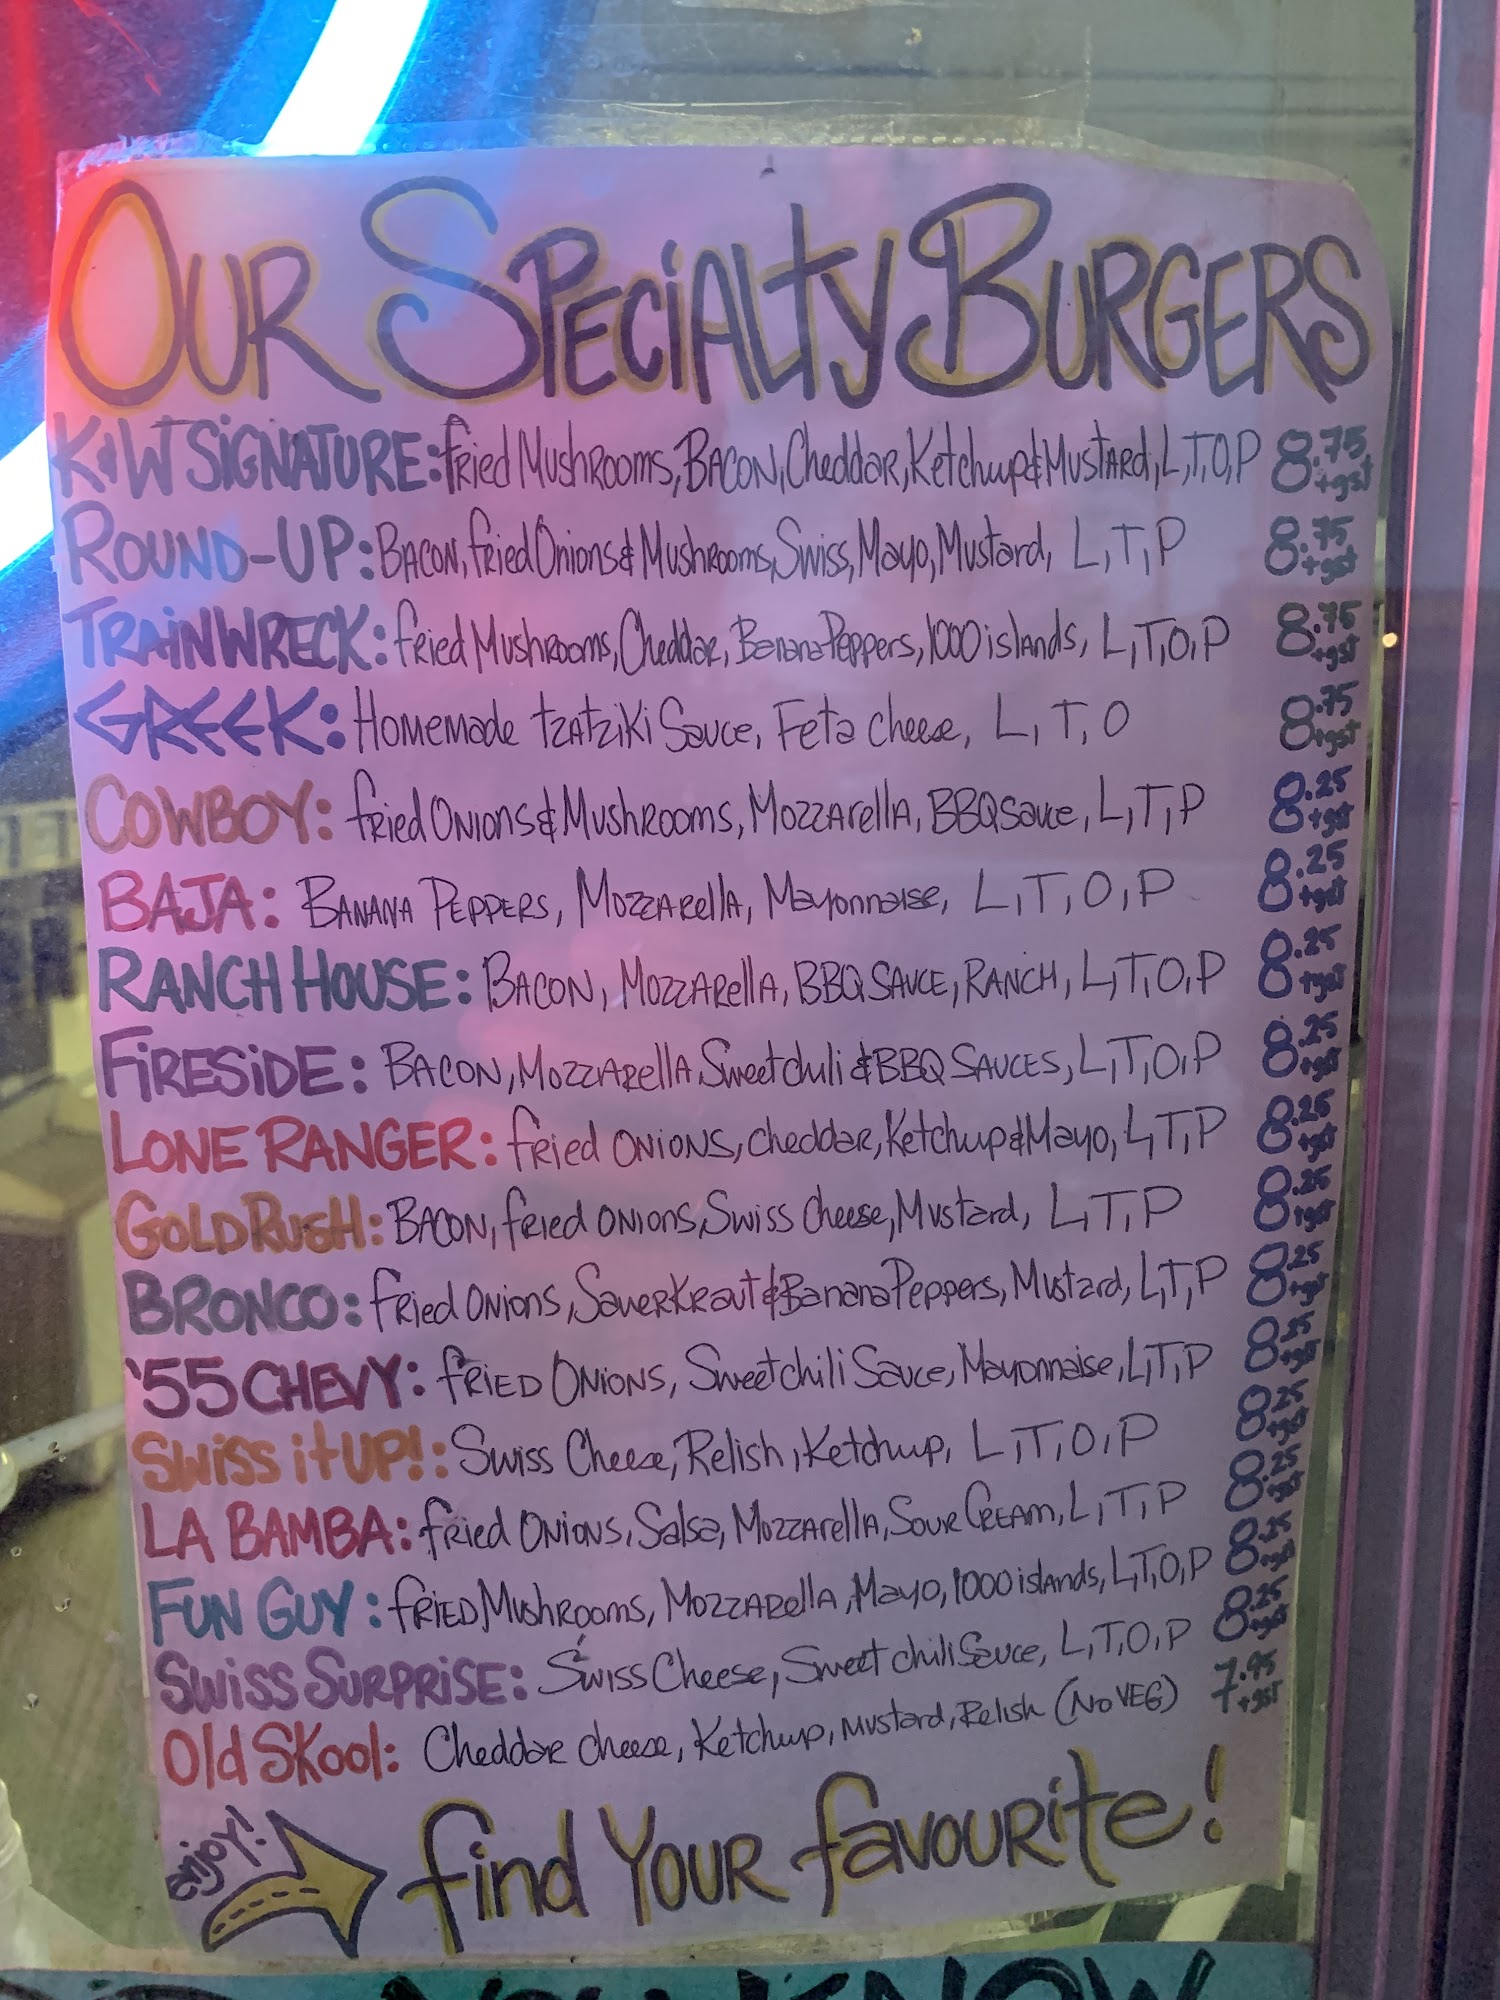 Our Specialty Burgers
K&W Signature: fried Mushrooms, Bacon, Cheddar, Ketchup & Mustard, L, T, O, P 8.75 +gst
Round-Up: Bacon, fried Onions & Mushrooms, Swiss, Mayo, Mustard, L, T, P 8.75 +gst
Trainwreck: fried Mushrooms, Cheddar, Banana Peppers, 1000 islands, L, T, O, P 8.75 +gst
Greek: Homemade tzatziki Sauce, Feta cheese, L, T, O 8.75 +gst
Cowboy: fried Onions & Mushrooms, Mozzarella, BBQ Sauce, L, T, P 8.25 +gst
Baja: Banana Peppers, Mozzarella, Mayonnaise, L, T, O, P 8.25 +gst
Ranch House: Bacon, Mozzarella, BBQ Sauce, Ranch, L, T, O, P 8.25 +gst
Fireside: Bacon, Mozzarella, Sweet chili & BBQ Sauces, L, T, O, P 8.25 +gst
Lone Ranger: fried onions, cheddar, Ketchup & Mayo, L, T, P 8.25 +gst
Gold Rush: Bacon, fried onions, Swiss Cheese, Mustard, L, T, P 8.25 +gst
Bronco: fried onions, Sauerkraut & Banana Peppers, Mustard, L, T, P 8.25 +gst
'55 Chevy: fried Onions, Sweet chili Sauce, Mayonnaise, L, T, P 8.25 +gst
Swiss it up!: Swiss Cheese, Relish, Ketchup, L, T, O, P 8.25 +gst
La Bamba: fried Onions, Salsa, Mozzarella, Sour Cream, L, T, P 8.25 +gst
Fun Guy: fried Mushrooms, Mozzarella, Mayo, 1000 islands, L, T, O, P 8.25 +gst
Swiss Surprise: Swiss Cheese, Sweet chili Sauce, L, T, O, P 8.25 +gst
Old Skool: Cheddar cheese, Ketchup, mustard, Relish (No Veg) 7.95 +gst
enjoy!
find Your favourite!
You Know